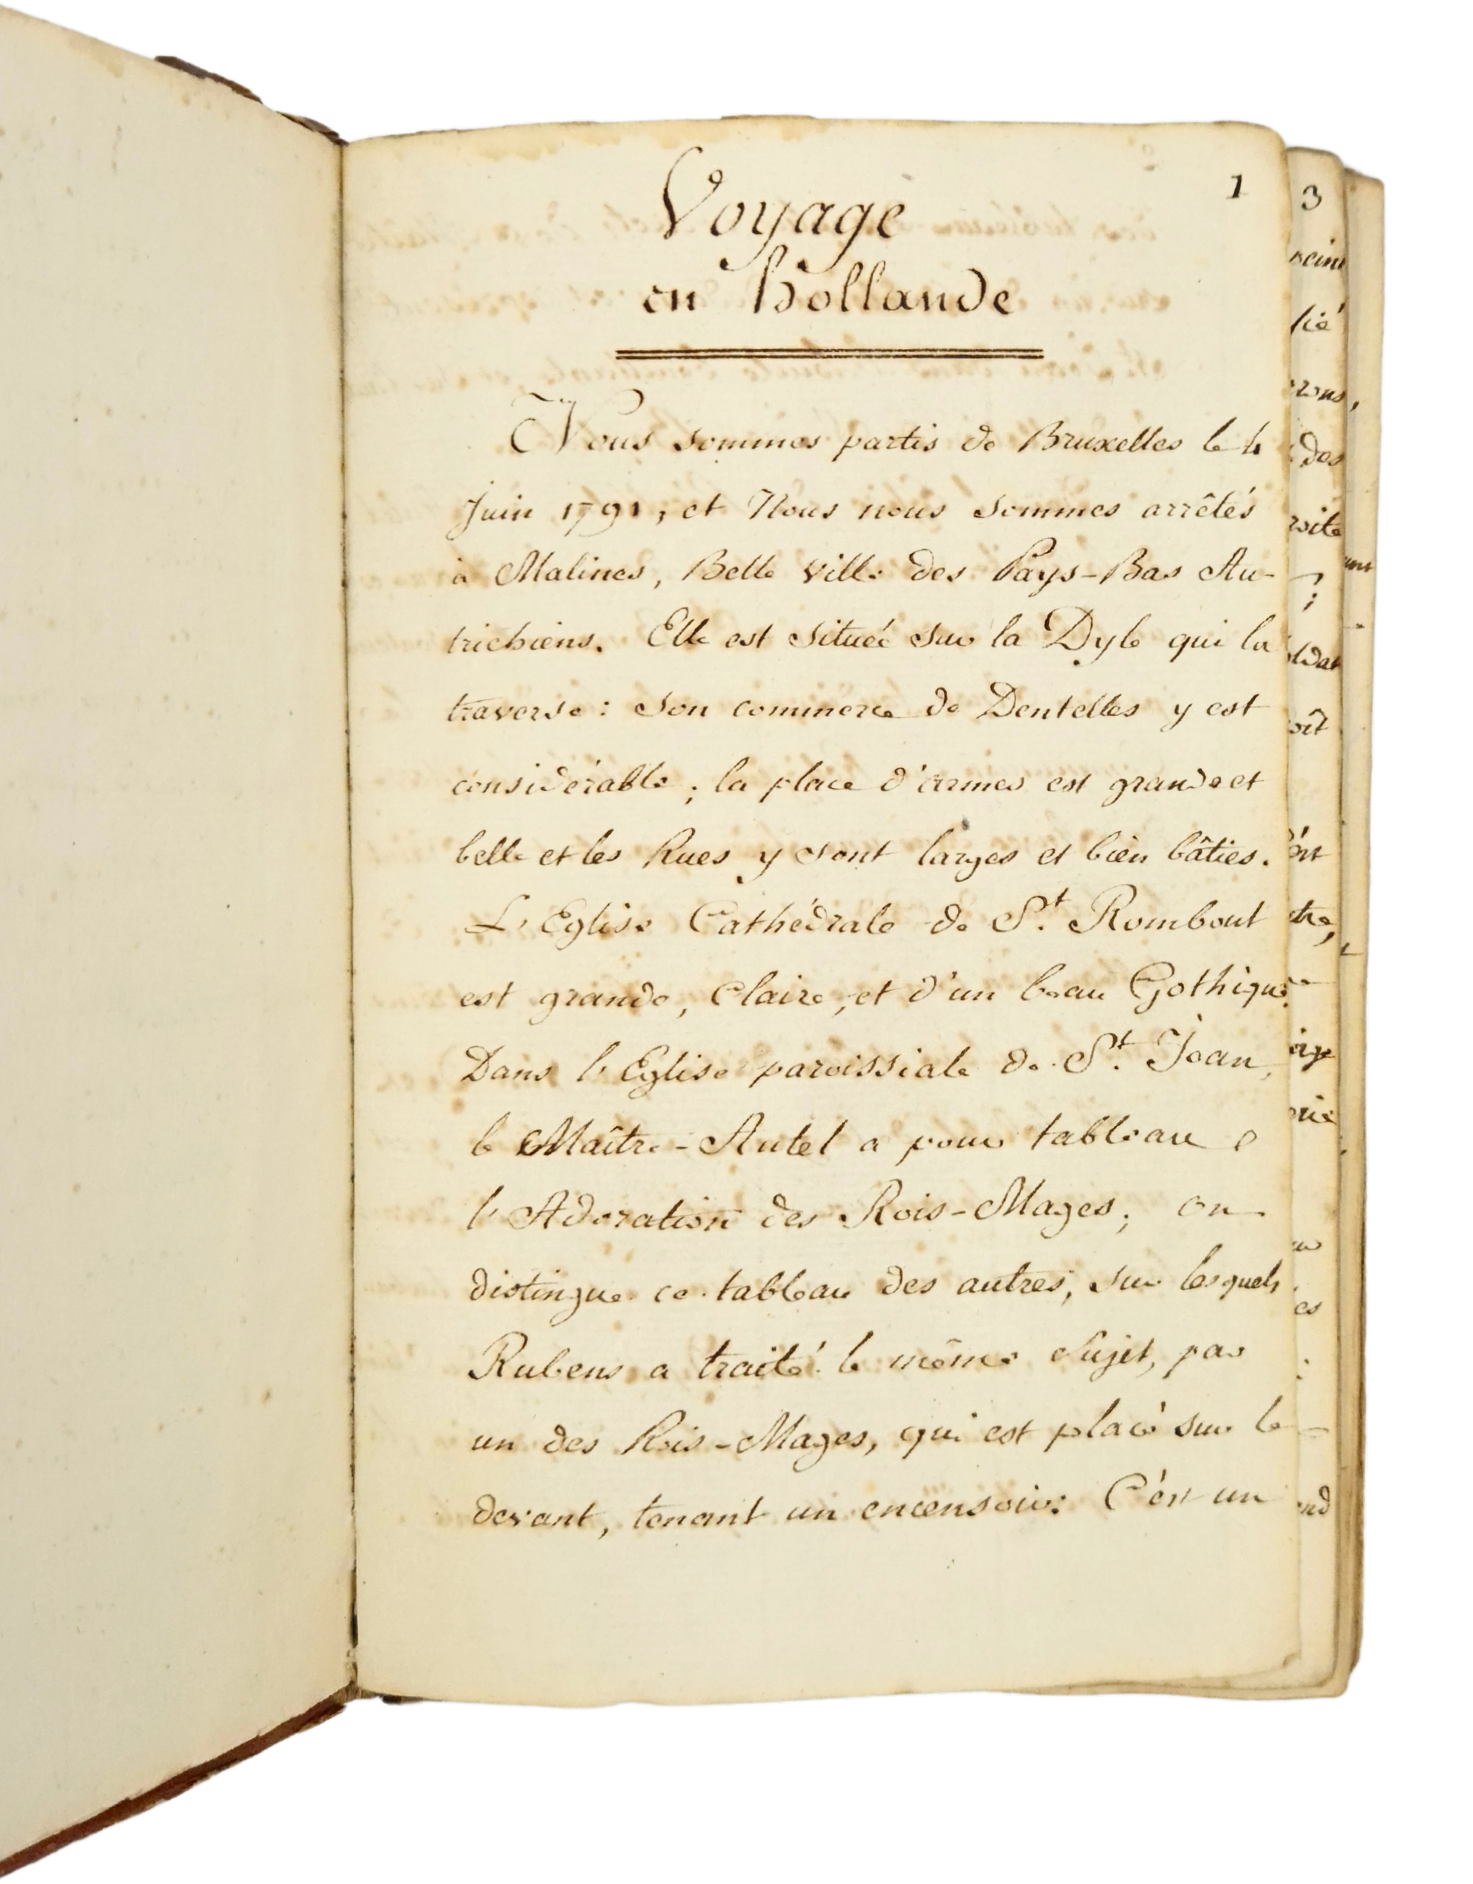 1
Voyage
en Hollande
Nous sommes partis de Bruxelles le 4
Juin 1791, et Nous nous sommes arrêtés
à Malines, Belle Ville des Pays-Bas Au-
trichiens. Elle est située sur la Dyle qui la
traverse : son commerce de Dentelles y est
considérable ; la place d'armes est grande et
belle et les Rues y sont larges et bien bâties.
L'Eglise Cathédrale de St. Rombout
est grande, Claire, et d'un beau Gothique.
Dans l'Eglise paroissiale de St. Jean,
le Maître-Autel a pour tableau
l'Adoration des Rois-Mages; on
distingue ce tableau des autres, sur lesquels
Rubens a traité le même Sujet, par
un des Rois-Mages, qui est placé sur le
devant, tenant un encensoir: C'est un
3